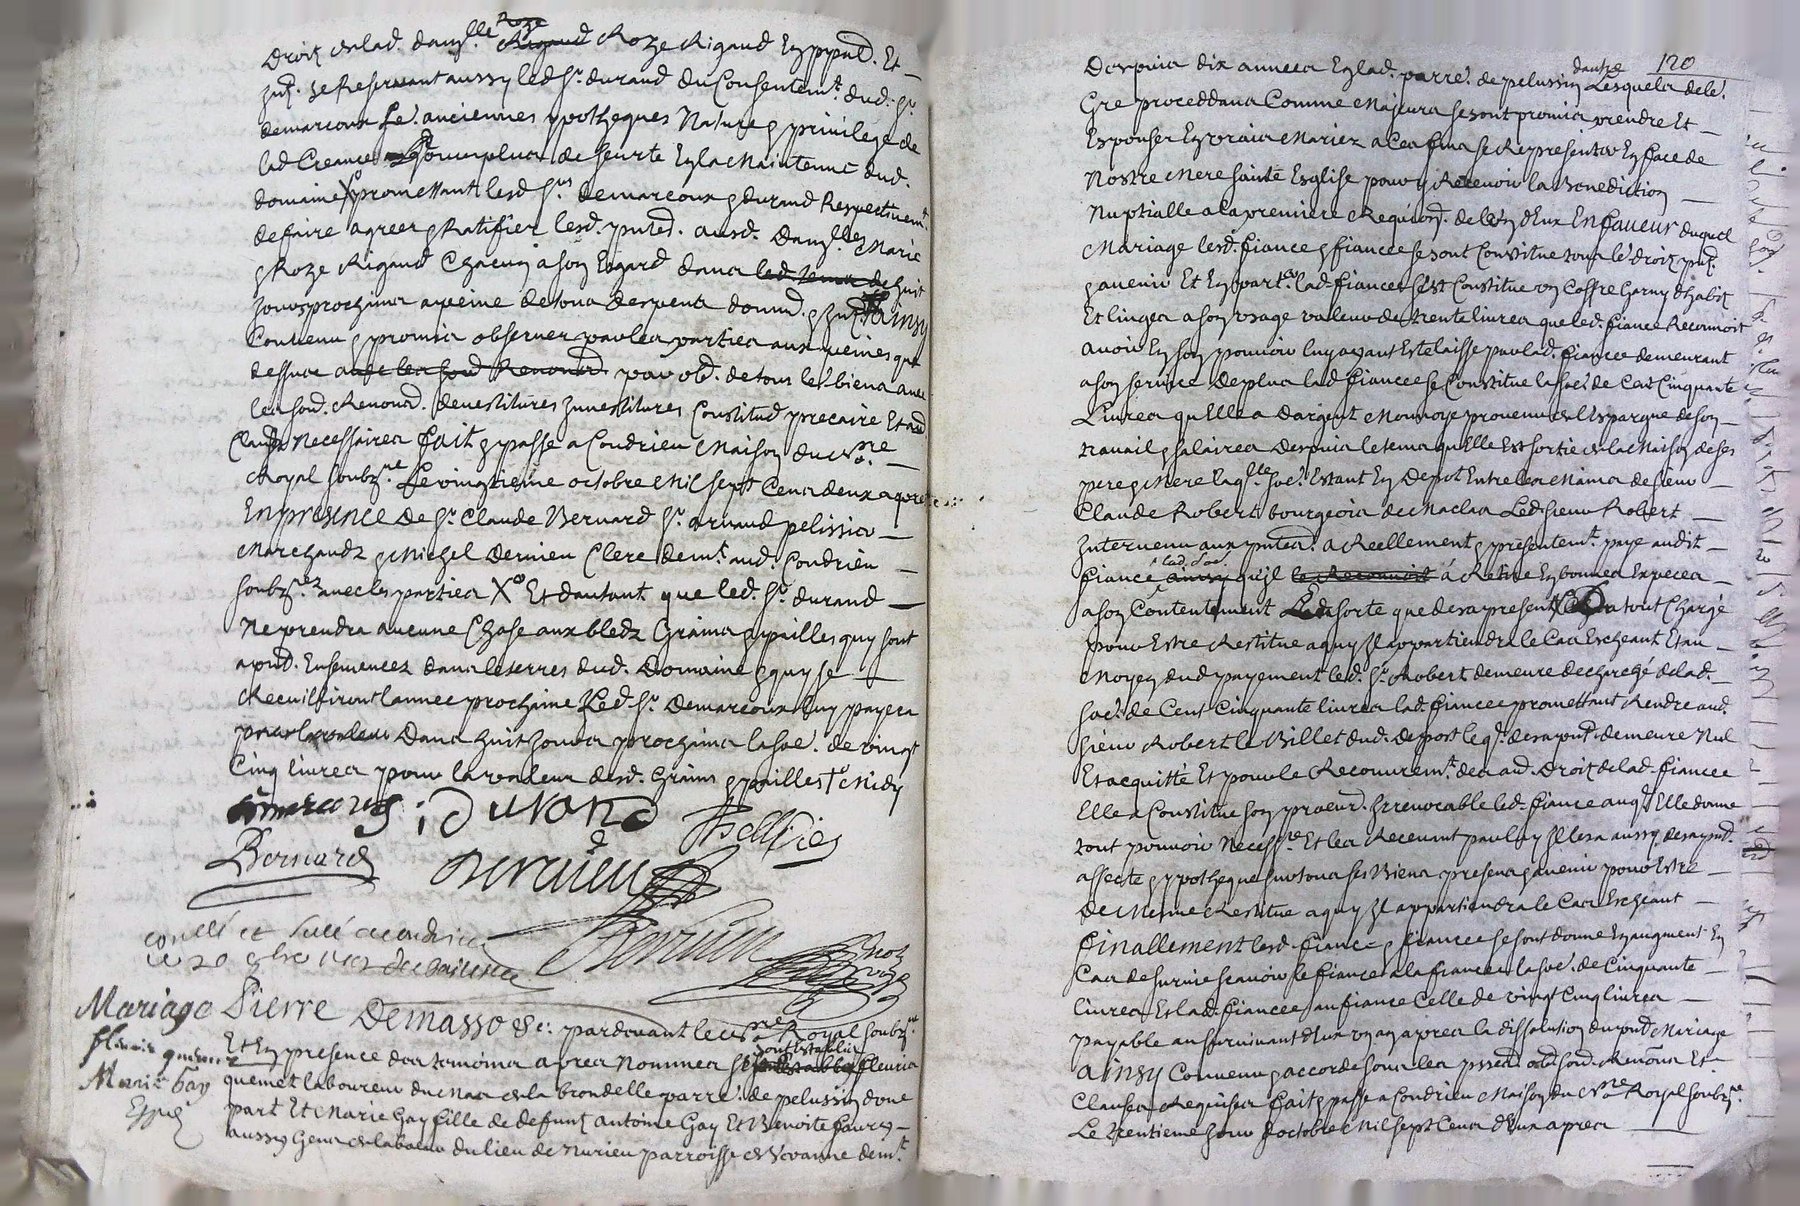 Droit de lad. dam.lle Roze Rigaud
Et
se Reservant aussy led. Sr. durand du Consentemt. dud. Sr.
demarcoux Les anciennes ypotheques Nature & privilege de
lad. Creance pour plus de seurte Et la Maintenue dud.
domaine X promettant lesd. Srs. demarcoux & durand Respectivemt.
de faire agreer & Ratifier lesd. pntes. ausd. dam.lles Marie
& Roze Rigaud Chacun a son Esgard dans huit
Jours prochains a peine de tous despens domd. & Ainsy
Convenu & promis observer par les parties aux peines que
dessus par obd. de tous les biens avec
les soud. Renond. devestitures Investitures Constitud precaire Et aud
Clauses Necessaires fait & passe a Condrieu Maison du nore
Royal soubzne. Le vingtieme octobre Mil sept Cens deux apres
En presence de Sr. Claude Bernard Sr. arnaud pelissier
Marchandz & Michel Dernieu Clerc demt. aud. Condrieu
soubzes. avec les parties X Et dautant que led. Sr. durand
Ne prendra aucune Chose aux bledz Grains & pailles quy sont
a pnt. Ensemencez dans les terres dud. Domaine & quy se
Recuilliront lannee prochaine Led. Sr. Demarcoux luy payera
Dans huit Jours prochains la soe. de vingt
Cinq livres pour la valeur desd. Grains & pailles Midy
durand
Bernard
Mariage
Pierre Demasso &c. pardevant le nore Royal soubzne
Et En presence des tesmoins apres Nommes sont Establis fleuris
quemet laboureur du Mas de la brondelle parre. de pelussin dune
Marie Gay
part Et Marie Gay fille de defunt antoine Gay Et Benoite faury
aussy Gens de labeur du lieu de Nurieu parroisse de Veranne demt.
120
Despuis dix annees En lad. parre. de pelussin dautre Lesquels de le.
Gre proceddans Comme Majeurs se sont promis prendre Et
Espouser En vrais Mariez a ces fins se Representer En face de
Nostre Mere sainte Esglise pour y Recevoir la Benediction
Nuptialle a la premiere Requisd. de lun dEux En faveur duquel
Mariage lesd. fiance & fiancee se sont Constitue tous les droitz pnt.
& avenir Et En part.er lad. fiancee sest Constitue un Coffre Garny dhabitz
Et linges a son usage valeur de trente livres que led. fiance Reconnoit
avoir En son pouvoir luy ayant Este laisse par lad. fiancee demeurant
a son service De plus lad. fiancee se Constitue la soe. de Cent Cinquante
Livres quElle a Dargent Monnoye provenu de lEspargne de son
travail & salaires Despuis le tems quElle Est sortie de la Maison de ses
pere & Mere laqlle. soe. Estant En Depot Entre les Mains de sieur
Claude Robert bourgeois de Maclas Led. sieur Robert
Intervenu aux pntes. a Reellement & presentemt. paye audit
fiance lad. soe. quil a Retire En bonnes Especes
a son Contentement De la sorte que des a present sen Charge
pour Estre Restitue a quy Il appartiendra le Cas Escheant Et au
Moyen dud. payement led. Sr. Robert demeure decharge de lad.
soe. de Cent Cinquante livres lad. fiancee promettant Rendre aud.
sieur Robert le Billet dud. Depost leql. des a pnt. demeure Nul
Et acquitte Et pour le Recouvremt. des aud. Droitz de lad. fiancee
Elle a Constitue son procur. Irrevocable led. fiance auql Elle donne
tout pouvoir Necessre Et les Recevant par luy Il les a aussy des a pnt.
affecte & ypotheque sur tous ses Biens presens & avenir pour Estre
De Mesme Restitue a quy Il appartiendra le Cas Escheant
finallement lesd. fiance & fiancee se sont donne En augment En
Cas de survie scavoir le fiance a la fiancee la soe. de Cinquante
livres Et lad. fiancee au fiance Celle de vingt Cinq livres
payable au survivant dEux un an apres la dissolution du pnt. Mariage
Ainsy Convenu & accorde sous les Et
Clauses Requises fait & passe a Condrieu Maison du Nore Royal soubzne.
Le trentieme Jour doctobre Mil sept Cens dEux apres